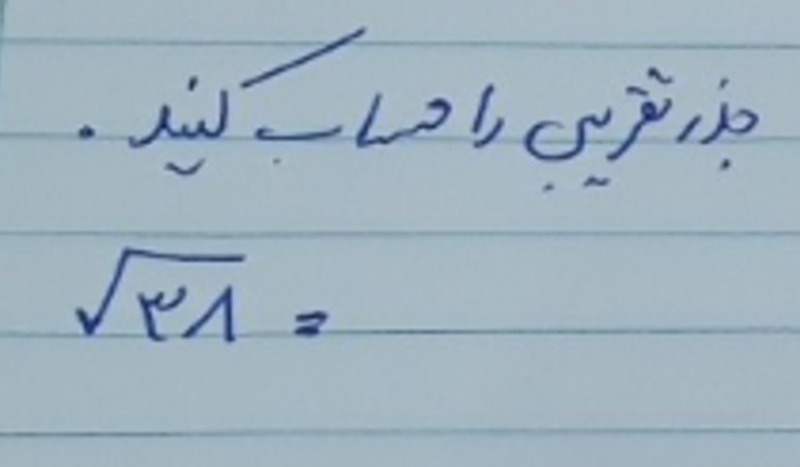 جذر تقریبی را حساب کنید .
√۳۸ =